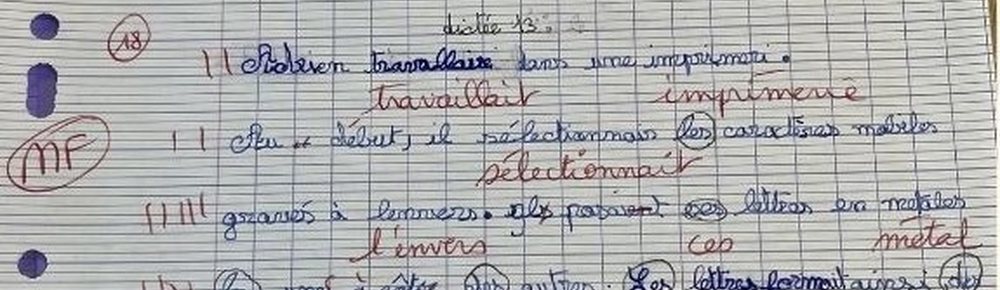 dictée 13 :
18
Adrien travallais dans une imprimeri.
travaillait imprimerie
MF
Au début, il séléctionnais les caractères mobiles
sélectionnait
gravés à lenvers. ils posaient ses lettres en métales
l'envers ces métal
à côte des autres. Les lettres formait ainsi des